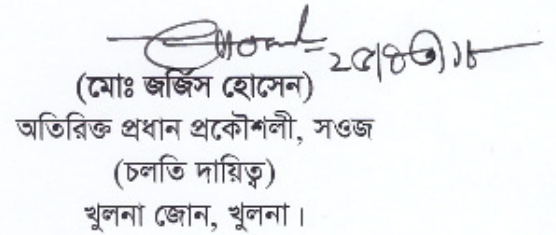 (মোঃ জর্জিস হোসেন)
অতিরিক্ত প্রধান প্রকৌশলী, সওজ
(চলতি দায়িত্ব)
খুলনা জোন, খুলনা।